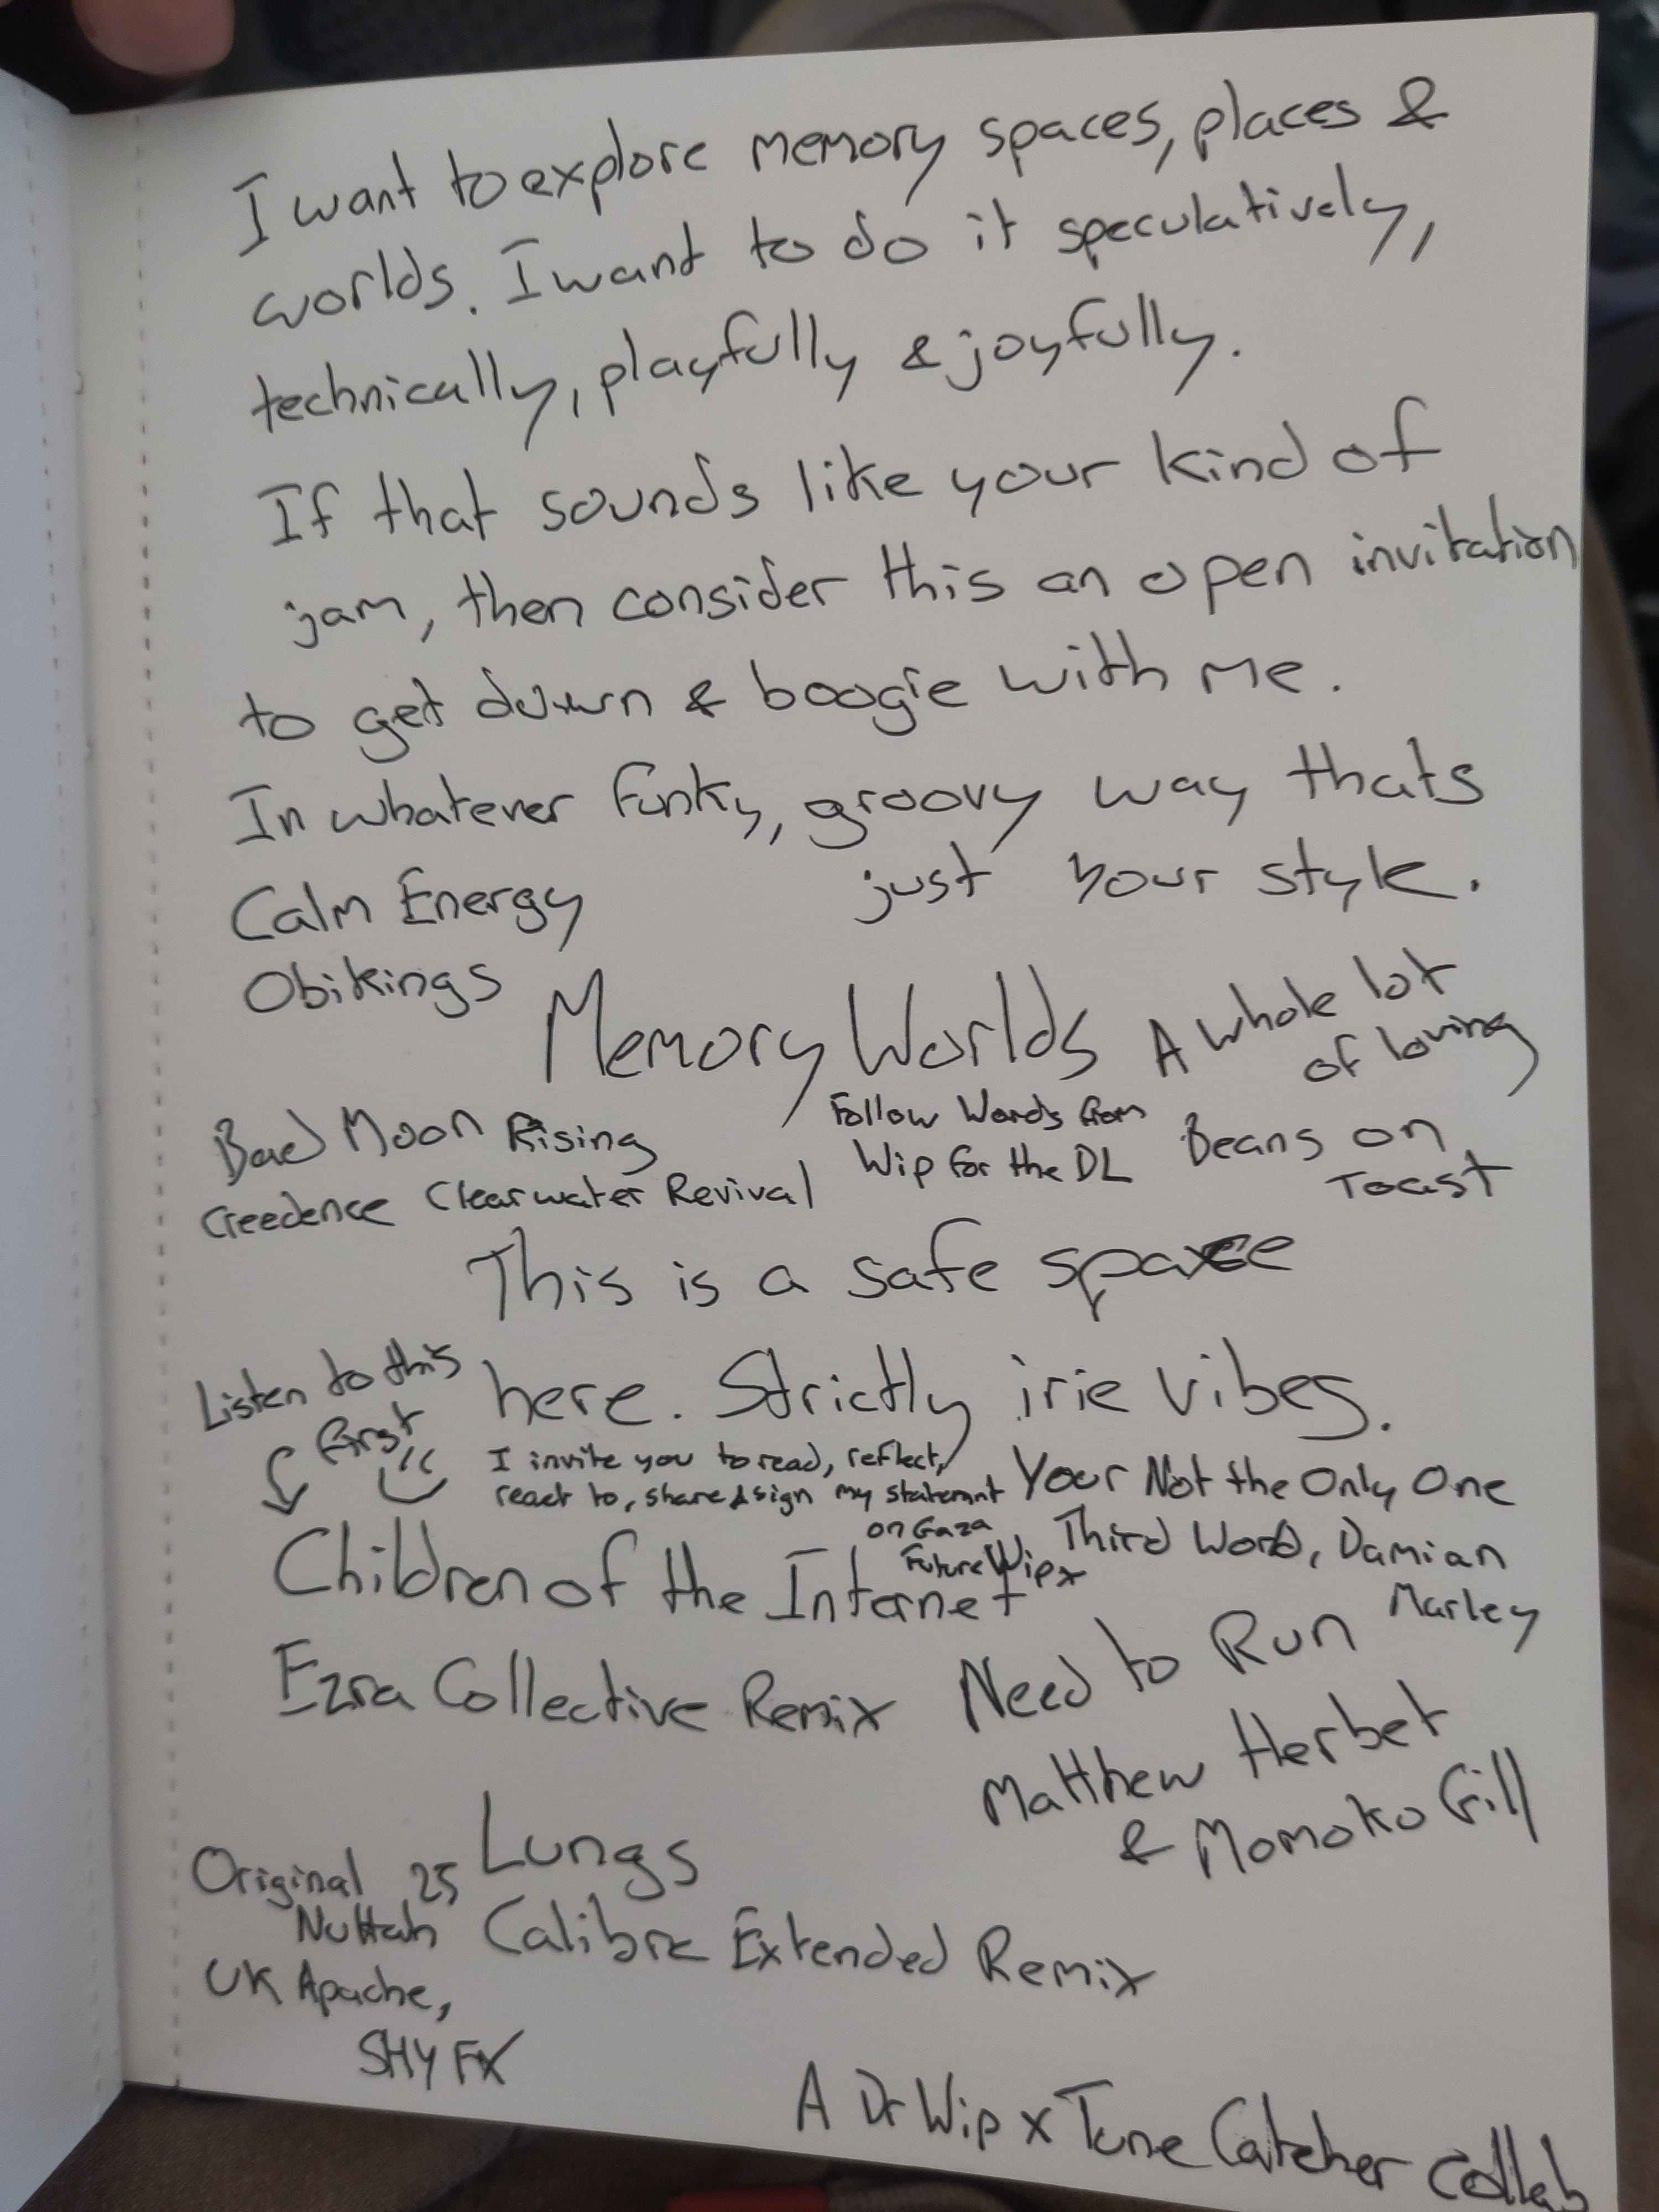 I want to explore memory spaces, places &
worlds. I want to do it speculatively,
technically, playfully & joyfully.
If that sounds like your kind of
jam, then consider this an open invitation
to get down & boogie with me.
In whatever funky, groovy way thats
just your style.
Calm Energy
Obikings
Memory Worlds
A whole lot
of loving
Beans on
Toast
Follow Words from
Wip for the DL
Bad Moon Rising
Creedence Clearwater Revival
This is a safe space
here. Strictly irie vibes.
Listen to this
first
I invite you to read, reflect,
react to, share & sign my statement
on Gaza
Future Wip x
Your Not the Only One
Third World, Damian
Marley
Children of the Internet
Ezra Collective Remix
Need to Run
Matthew Herbet
& Momoko Gill
Lungs
Calibre Extended Remix
Original Nuttah 25
UK Apache,
SHY FX
A Dr Wip x Tune Catcher collab